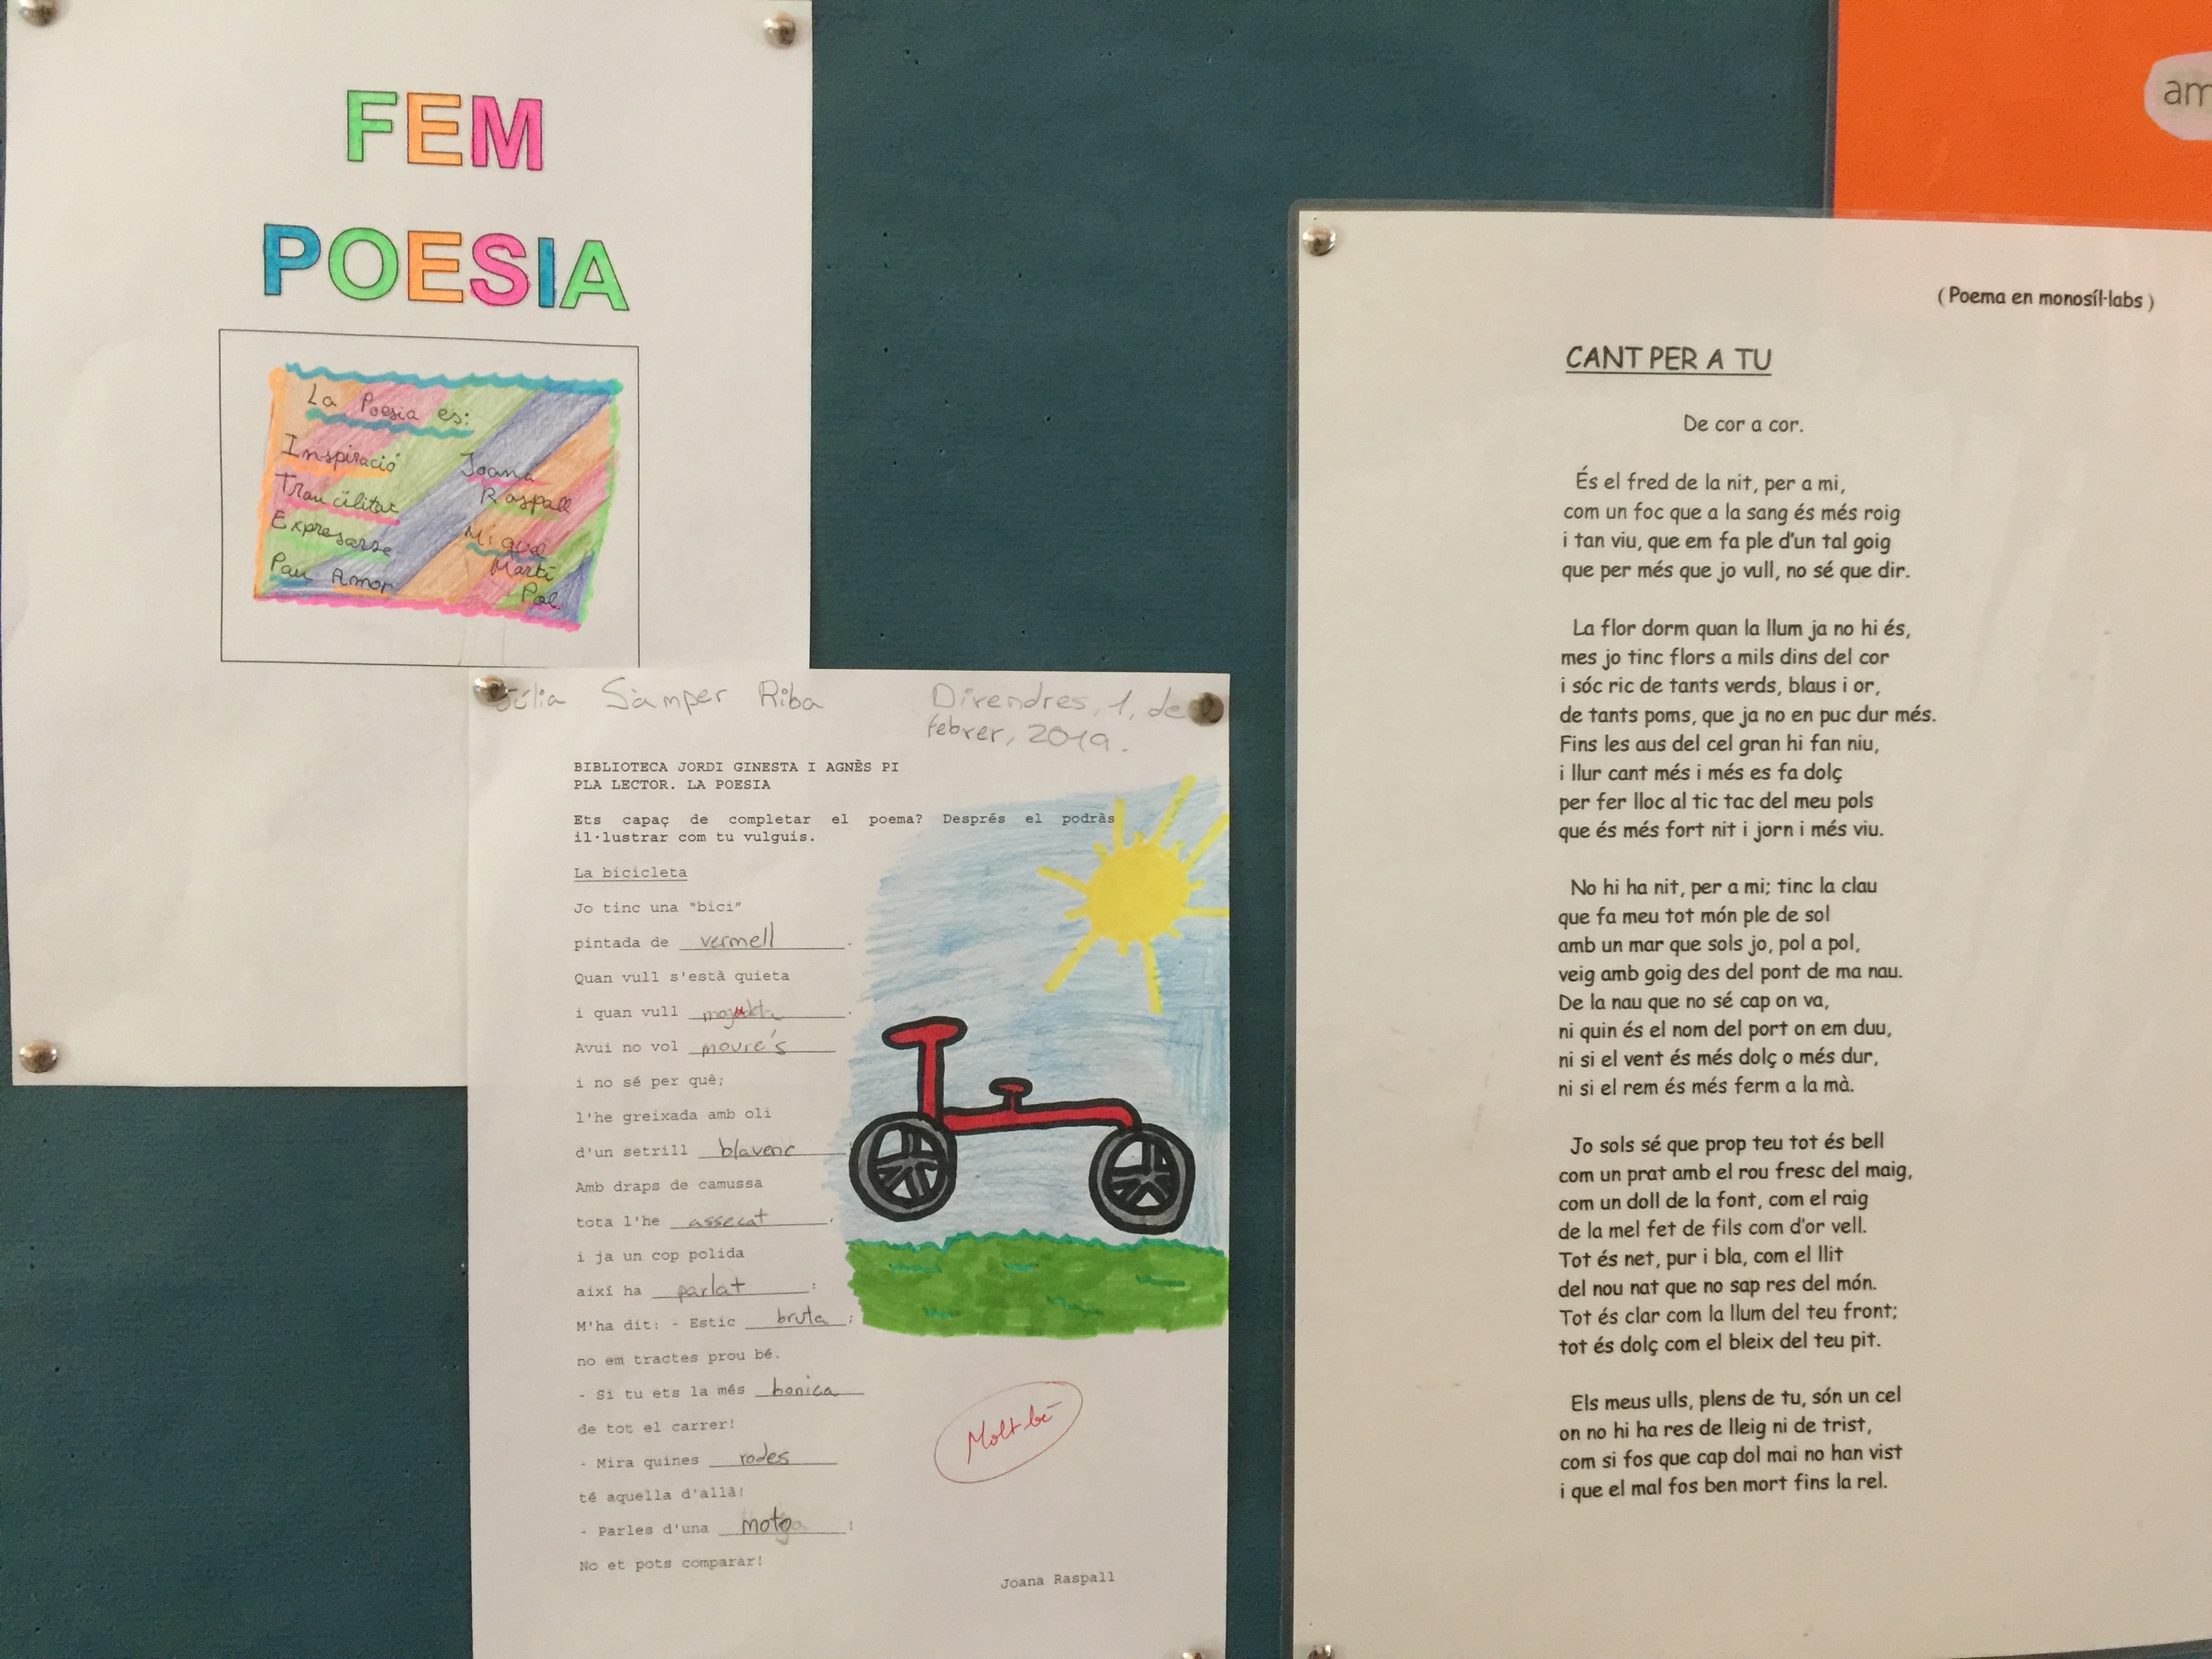 FEM
POESIA
La Poesia es:
Inspiració
Trancilitat
Expresarse
Pau Amor
Joana
Raspall
Miquel
Martí
Pol
Júlia Samper Riba
Divendres, 1, de
febrer, 2019.
BIBLIOTECA JORDI GINESTA I AGNÈS PI
PLA LECTOR. LA POESIA
Ets capaç de completar el poema? Després el podràs
il·lustrar com tu vulguis.
La bicicleta
Jo tinc una "bici"
pintada de vermell.
Quan vull s'està quieta
i quan vull
Avui no vol moure's
i no sé per què;
l'he greixada amb oli
d'un setrill blavenc
Amb draps de camussa
tota l'he assecat,
i ja un cop polida
així ha parlat:
M'ha dit: - Estic bruta;
no em tractes prou bé.
- Si tu ets la més bonica
de tot el carrer!
- Mira quines rodes
té aquella d'allà!
- Parles d'una moto!
No et pots comparar!
Joana Raspall
Molt bé
am
( Poema en monosíl·labs )
CANT PER A TU
De cor a cor.
És el fred de la nit, per a mi,
com un foc que a la sang és més roig
i tan viu, que em fa ple d'un tal goig
que per més que jo vull, no sé que dir.
La flor dorm quan la llum ja no hi és,
mes jo tinc flors a mils dins del cor
i sóc ric de tants verds, blaus i or,
de tants poms, que ja no en puc dur més.
Fins les aus del cel gran hi fan niu,
i llur cant més i més es fa dolç
per fer lloc al tic tac del meu pols
que és més fort nit i jorn i més viu.
No hi ha nit, per a mi; tinc la clau
que fa meu tot món ple de sol
amb un mar que sols jo, pol a pol,
veig amb goig des del pont de ma nau.
De la nau que no sé cap on va,
ni quin és el nom del port on em duu,
ni si el vent és més dolç o més dur,
ni si el rem és més ferm a la mà.
Jo sols sé que prop teu tot és bell
com un prat amb el rou fresc del maig,
com un doll de la font, com el raig
de la mel fet de fils com d'or vell.
Tot és net, pur i bla, com el llit
del nou nat que no sap res del món.
Tot és clar com la llum del teu front;
tot és dolç com el bleix del teu pit.
Els meus ulls, plens de tu, són un cel
on no hi ha res de lleig ni de trist,
com si fos que cap dol mai no han vist
i que el mal fos ben mort fins la rel.